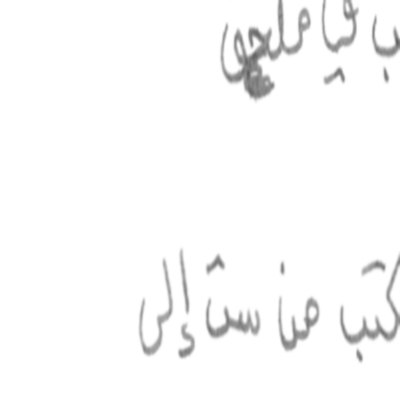 في ملحق
كتب من ست إلى